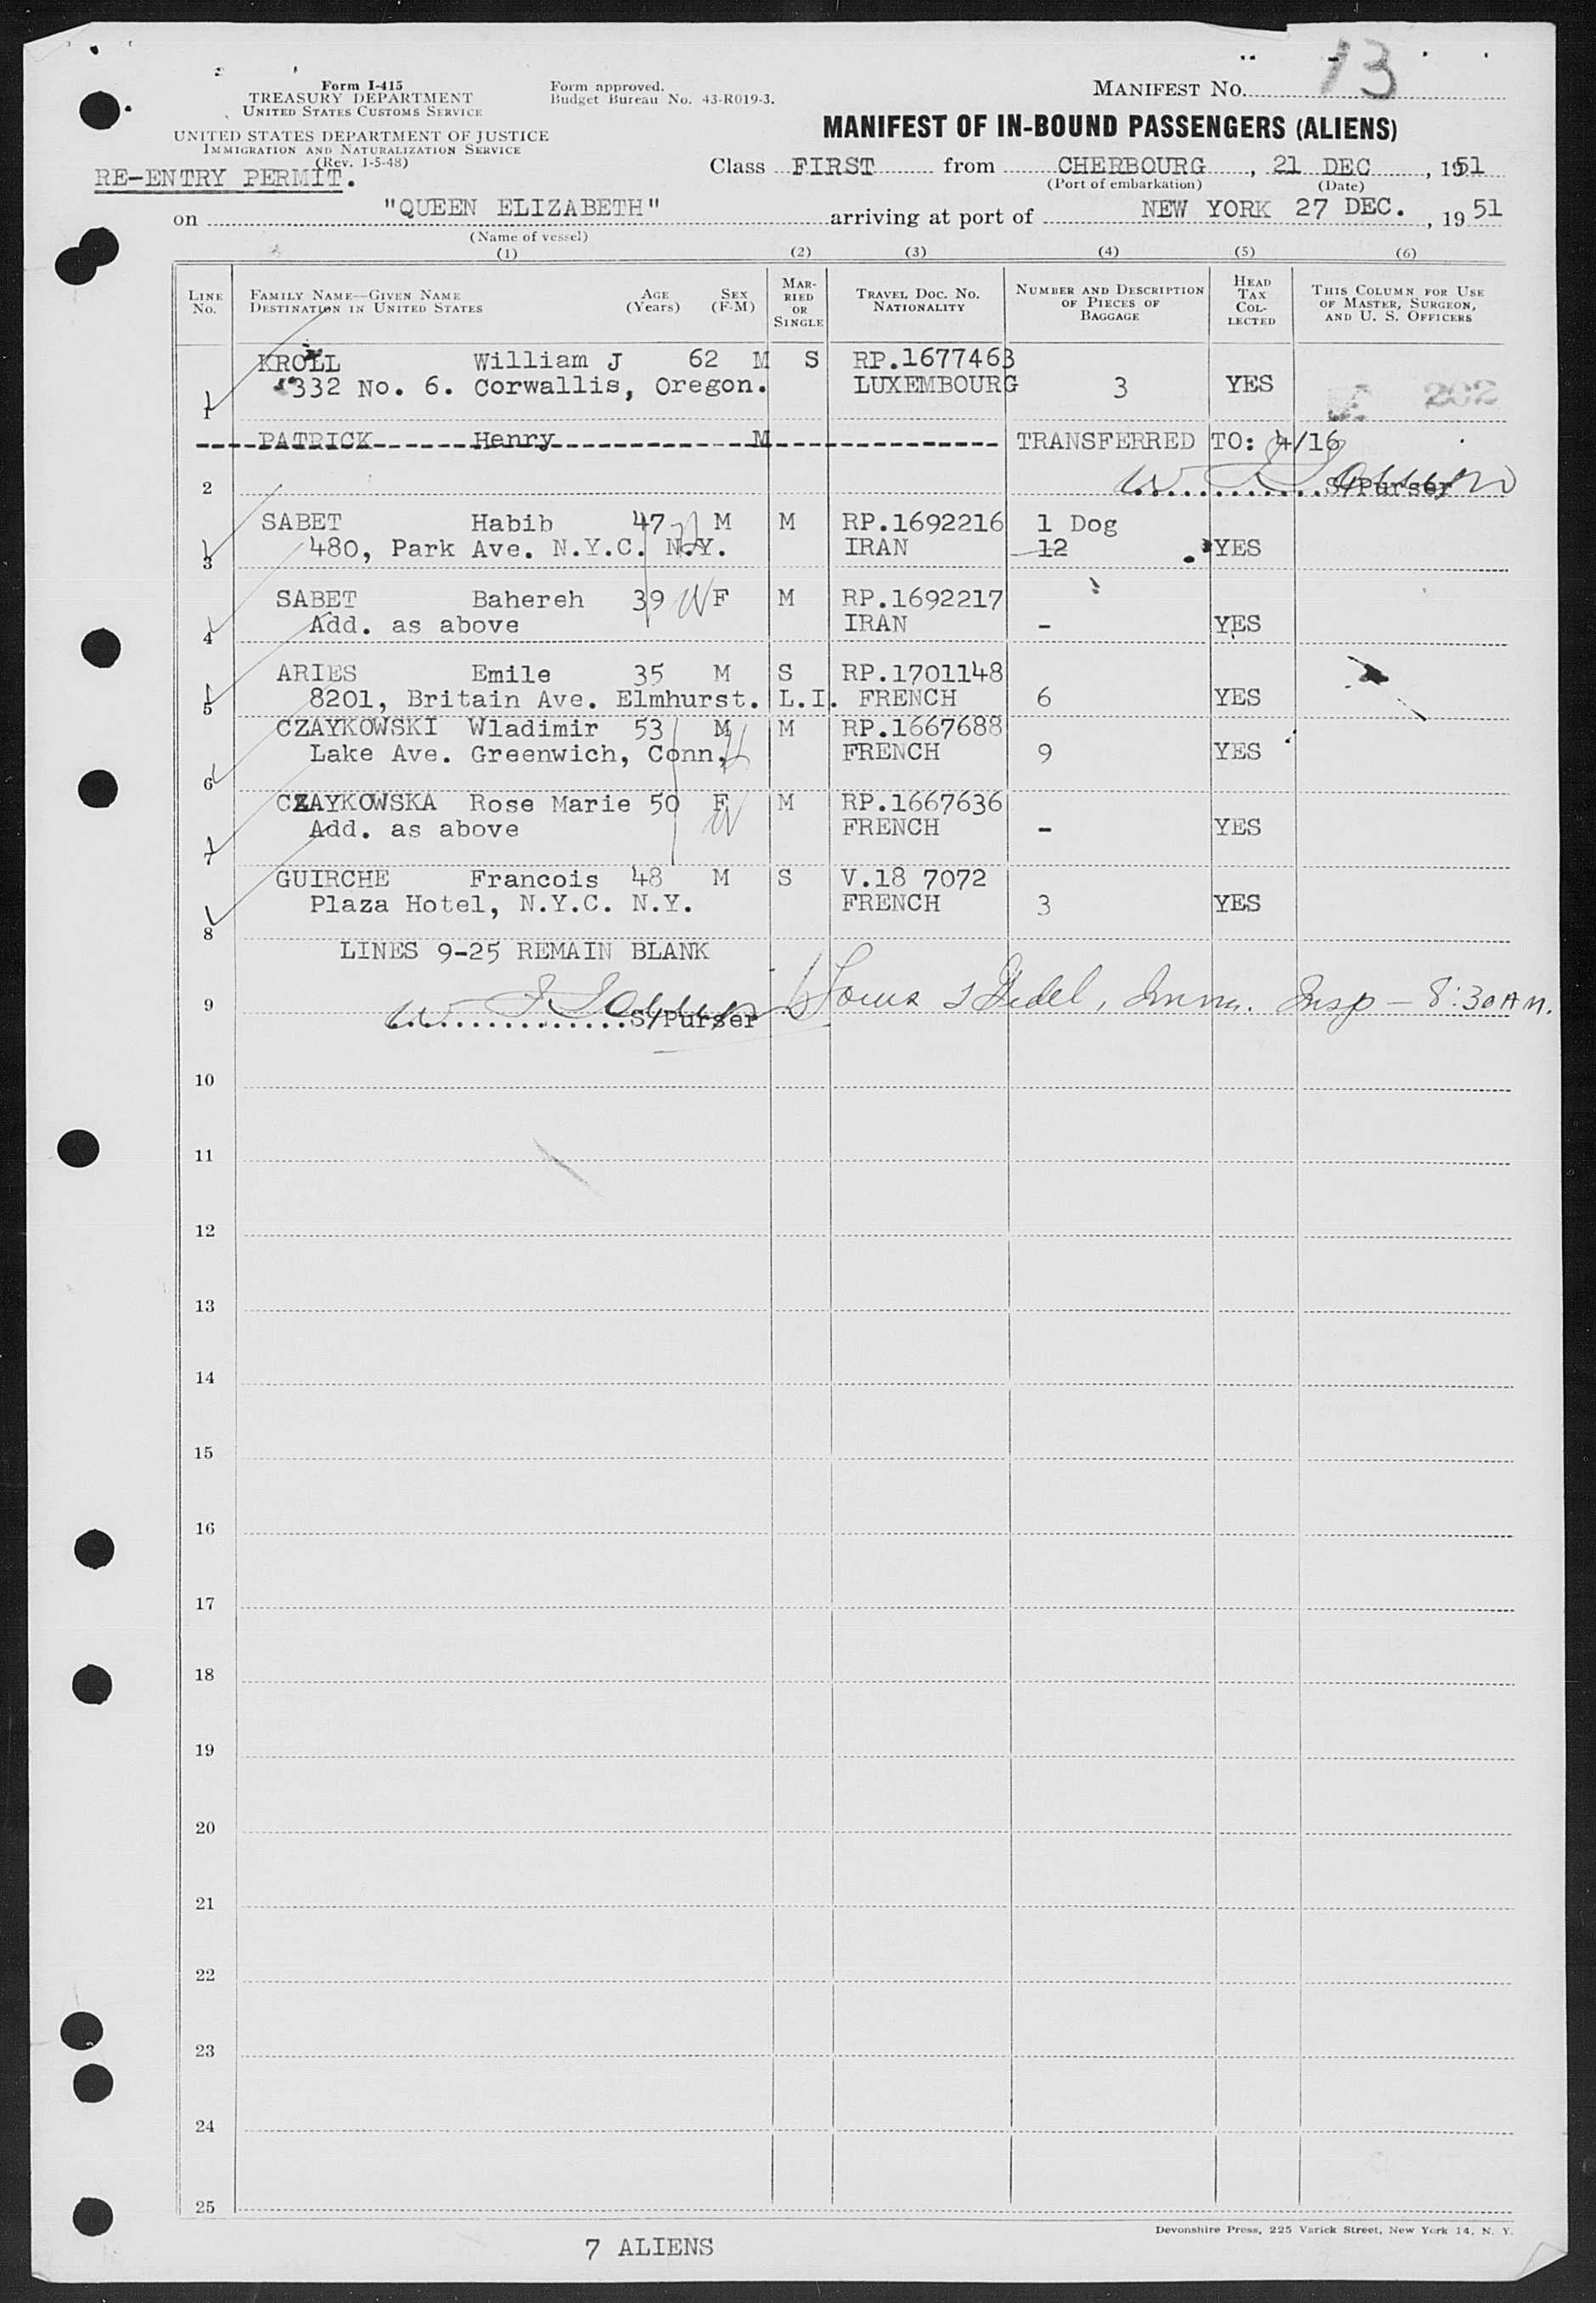 Form I-415
TREASURY DEPARTMENT
UNITED STATES CUSTOMS SERVICE
Form approved.
Budget Bureau No. 43-R019-3.
MANIFEST No. 13
UNITED STATES DEPARTMENT OF JUSTICE
IMMIGRATION AND NATURALIZATION SERVICE
(Rev. 1-5-48)
RE-ENTRY PERMIT.
MANIFEST OF IN-BOUND PASSENGERS (ALIENS)
Class FIRST from CHERBOURG, 21 DEC, 1951
(Port of embarkation) (Date)
on "QUEEN ELIZABETH" arriving at port of NEW YORK 27 DEC., 19 51
(Name of vessel)
(1) (2) (3) (4) (5) (6)
LINE No. FAMILY NAME—GIVEN NAME DESTINATION IN UNITED STATES AGE (Years) SEX (F-M) MARRIED OR SINGLE TRAVEL DOC. NO. NATIONALITY NUMBER AND DESCRIPTION OF PIECES OF BAGGAGE HEAD TAX COLLECTED THIS COLUMN FOR USE OF MASTER, SURGEON, AND U. S. OFFICERS
KROLL William J 62 M S RP.1677463
1 332 No. 6. Corwallis, Oregon. LUXEMBOURG 3 YES 202
PATRICK Henry M TRANSFERRED TO: 4/16
2 S/Purser
SABET Habib 47 M M RP.1692216 1 Dog
3 480, Park Ave. N.Y.C. N.Y. IRAN 12 YES
SABET Bahereh 39 W F M RP.1692217
4 Add. as above IRAN - YES
ARIES Emile 35 M S RP.1701148
5 8201, Britain Ave. Elmhurst. L.I. FRENCH 6 YES
CZAYKOWSKI Wladimir 53 M M RP.1667688
6 Lake Ave. Greenwich, Conn. H FRENCH 9 YES
CZAYKOWSKA Rose Marie 50 F M RP.1667636
7 Add. as above W FRENCH - YES
GUIRCHE Francois 48 M S V.18 7072
8 Plaza Hotel, N.Y.C. N.Y. FRENCH 3 YES
LINES 9-25 REMAIN BLANK
9 S/Purser Immn. Insp — 8:30 AM.
10
11
12
13
14
15
16
17
18
19
20
21
22
23
24
25
Devonshire Press, 225 Varick Street, New York 14, N. Y.
7 ALIENS